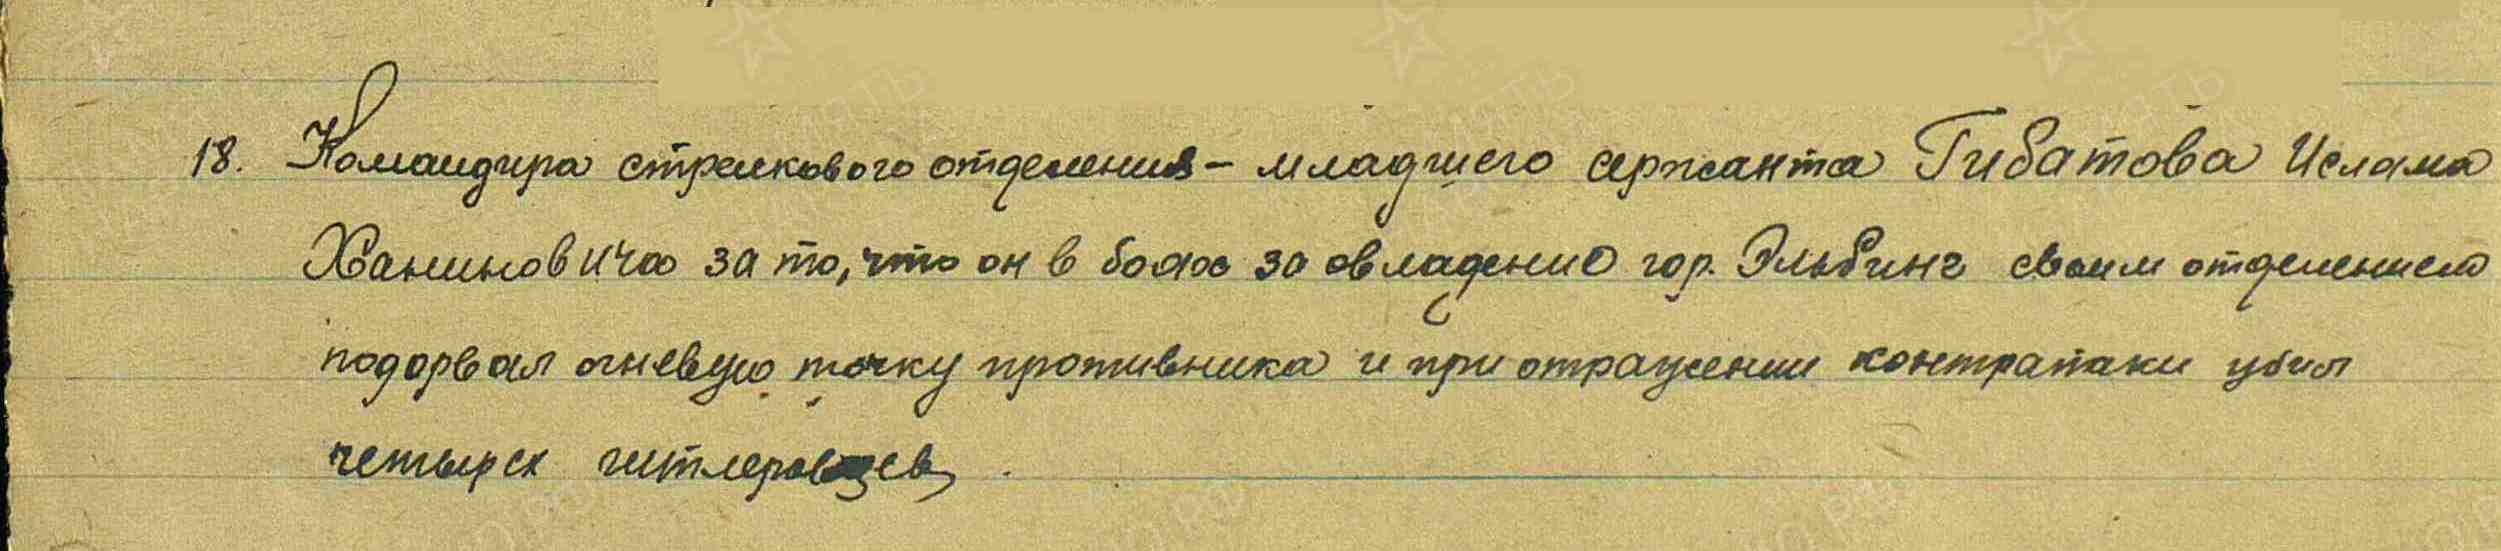 18. Командира стрелкового отделения - младшего сержанта Гибатова Ислама
Ханиновича за то, что он в боях за овладение гор. Эльбинг своим отделением
подорвал огневую точку противника и при отражении контратаки убил
четырех гитлеровцев.